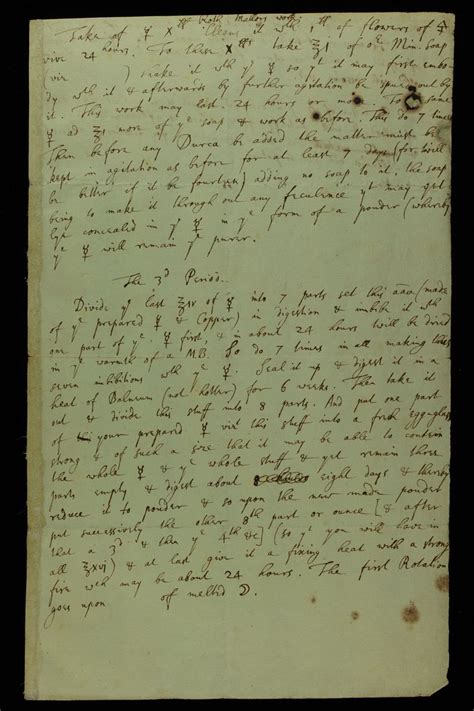 Take of ☿ X lbs
Cleans it with lbs of flowers of
vive 24 hours. To these X lbs take ℥1 of or Min. soap
viz ) shake it wth ye ☿ so yt it may first embo-
dy wth it & afterwards by further agitation be spued out by
it. This work may last 24 hours or more. To ye same
☿ ad ℥1 more of ye soap & work as before. This do 7 times
Then before any Durca be added the matter must be
kept in agitation as before for at least 7 days (for twill
be better if it be fourteen) adding no soap to it. the soap
being to make it through out any feculence yt may yet
lye concealed in ye ☿ in ye form of a pouder (whereby
ye ☿ will remain ye purer.
The 3d Period.
Divide ye last ℥iv of ☿ into 7 parts set this āāā (made
of ye prepared ☿ & Copper) in digestion & imbibe it wth
one part of ye ☿ first, & in about 24 hours will be dried
in ye warmth of a MB. So do 7 times in all making thus
seven inbibitions wth ye ☿. Seal it up & digest it in a
heat of Balneum (not hotter) for 6 weeks. Then take it
out & divide this stuff into 8 parts. And put one part
of your prepared ☿ viz this stuff into a fresh eggglass
strong & of such a size that it may be able to contein
the whole ☿ & ye whole stuff & yet remain three
parts empty & digest about eight days & thereby
reduce it to pouder & so upon the new made pouder
put successively the other 8th part or ounce [& after
that a 3d & then ye 4th &c] (so yt you will have in
all ℥xvj) & at last give it a fixing heat with a strong
fire wch may be about 24 hours. The first Rotation
goes upon of melted ☽.